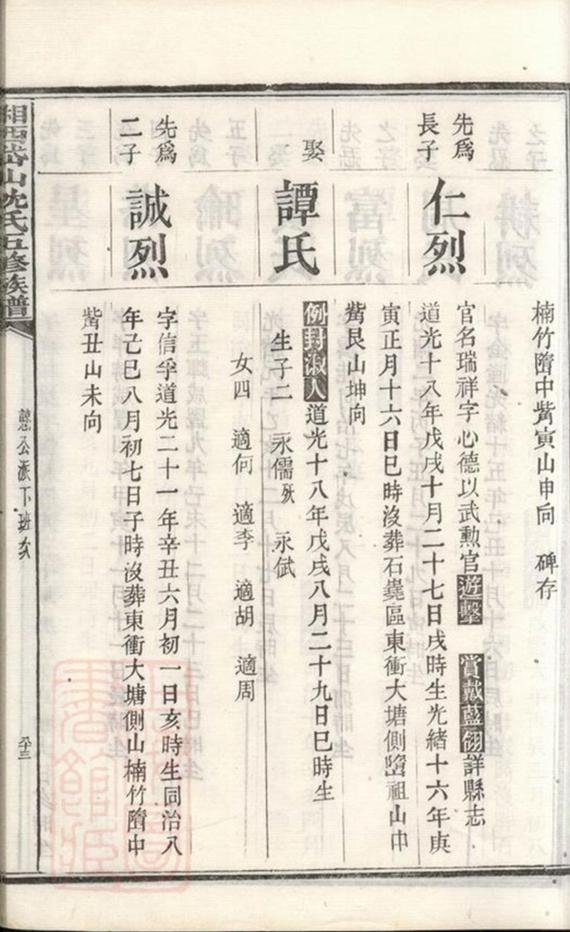 楠竹隋中觜寅山申向　碑存
先爲長子
仁烈
官名瑞祥字心德以武勲官遊擊　賞戴藍翎詳縣志
道光十八年戊戌十月二十七日戌時生光緒十六年庚
寅正月十六日巳時沒葬石㙡區東衝大塘側墮祖山中
觜艮山坤向
娶
譚氏
例封淑人道光十八年戊戌八月二十九日巳時生
生子二　永儒殀　永弑
女四　適何　適李　適胡　適周
先爲二子
誠烈
字信孚道光二十一年辛丑六月初一日亥時生同治八
年己巳八月初七日子時沒葬東衝大塘側山楠竹隋中
觜丑山未向
湘西岱山沈氏五修族譜
公派下班次